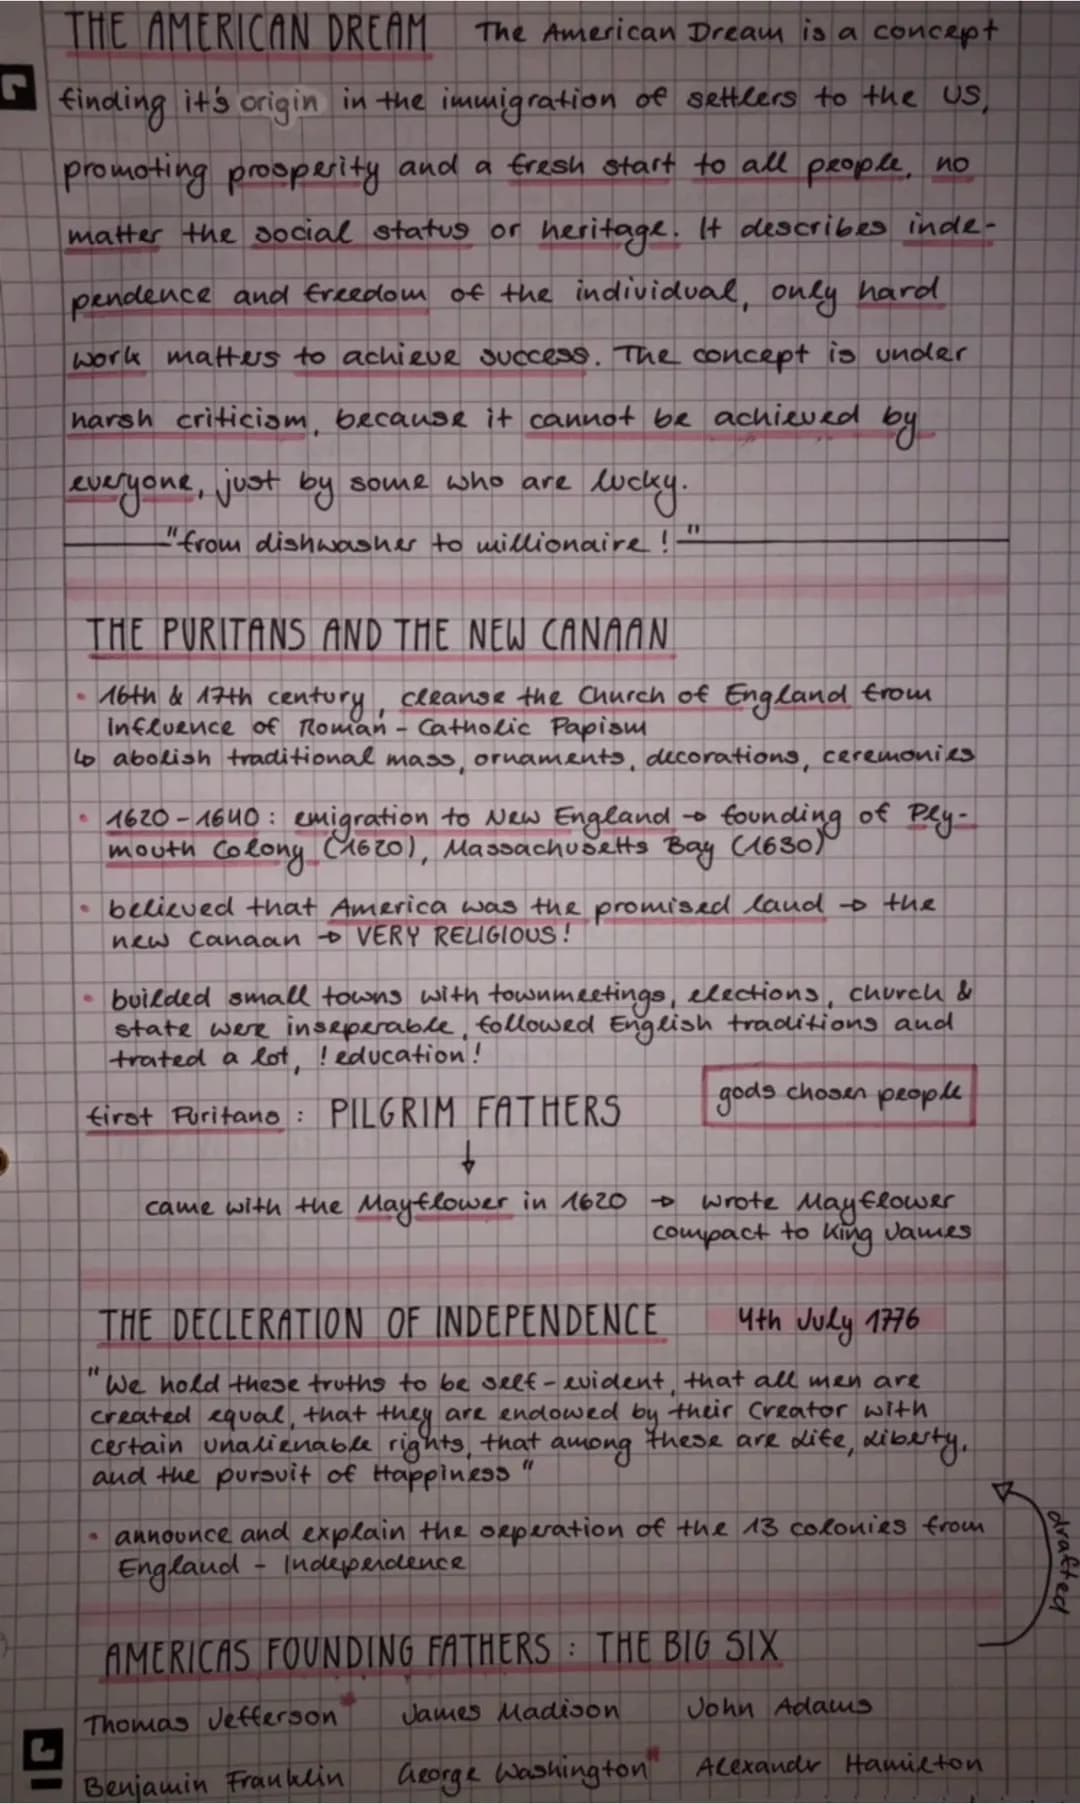 THE AMERICAN DREAM The American Dream is a concept
finding it's origin in the immigration of settlers to the US,
promoting prosperity and a fresh start to all people, no
matter the social status or heritage. It describes inde-
pendence and freedom of the individual, only hard
work matters to achieve success. The concept is under
harsh criticism, because it cannot be achieved by
everyone, just by some who are lucky.
"from dishwasher to millionaire!"
THE PURITANS AND THE NEW CANAAN
• 16th & 17th century, cleanse the Church of England from
influence of Roman-Catholic Papism
↳ abolish traditional mass, ornaments, decorations, ceremonies
• 1620-1640: emigration to New England → founding of Ply-
mouth Colony (1620), Massachusetts Bay (1630)
• believed that America was the promised land → the
new Canaan → VERY RELIGIOUS!
• builded small towns with townmeetings, elections, church &
state were inseperable, followed English traditions and
trated a lot, ! education!
gods chosen people
first Puritans: PILGRIM FATHERS
↓
came with the Mayflower in 1620 → wrote Mayflower
compact to King James
THE DECLERATION OF INDEPENDENCE 4th July 1776
"We hold these truths to be self-evident, that all men are
created equal, that they are endowed by their Creator with
certain unalienable rights, that among these are Life, Liberty,
and the pursuit of Happiness"
• announce and explain the seperation of the 13 colonies from
England - Independence
drafted
AMERICAS FOUNDING FATHERS: THE BIG SIX
Thomas Jefferson* James Madison John Adams
Benjamin Franklin George Washington* Alexandr Hamilton